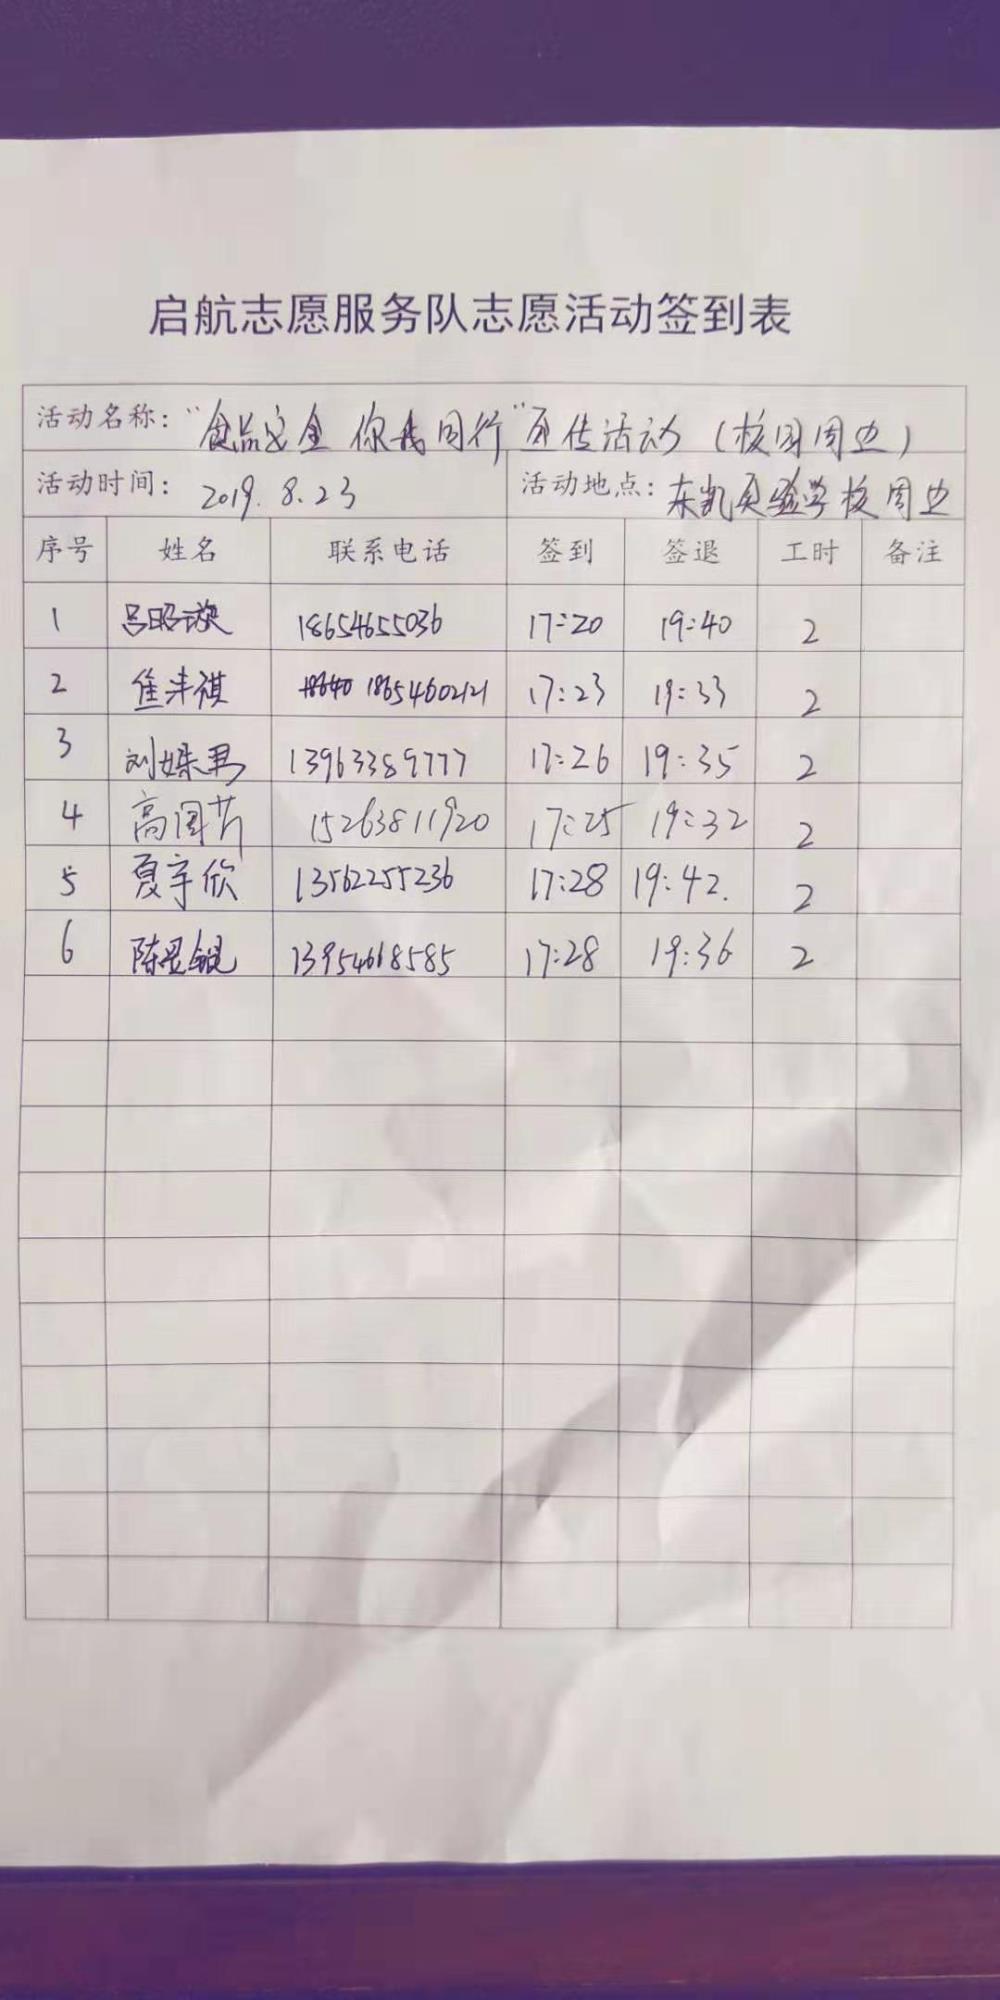 启航志愿服务队志愿活动签到表
活动名称："食品安全 你我同行"宣传活动（校园周边）
活动时间：2019.8.23 活动地点：东凯实验学校周边
序号 姓名 联系电话 签到 签退 工时 备注
1 吕昭璇 18654655036 17:20 19:40 2
2 18654602121 17:23 19:33 2
3 刘姝男 13963389777 17:26 19:35 2
4 高国芹 15263811920 17:25 19:32 2
5 夏宇欣 13562255236 17:28 19:42. 2
6 陈昱锟 13954618585 17:28 19:36 2